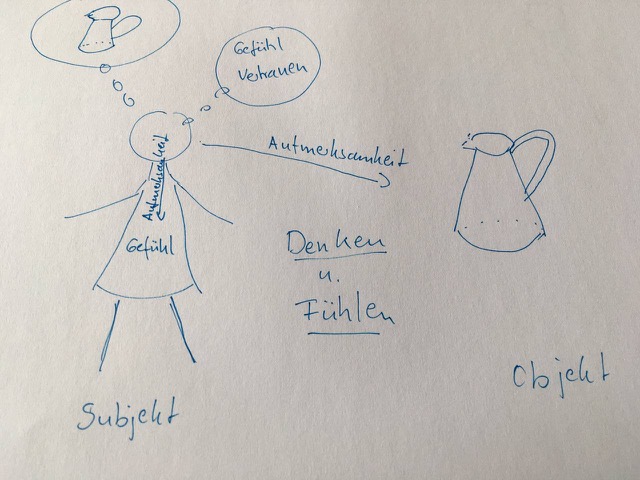 Gefühl
Vertrauen
Aufmerksamkeit
Aufmerksamkeit
Gefühl
Denken
u.
Fühlen
Objekt
Subjekt